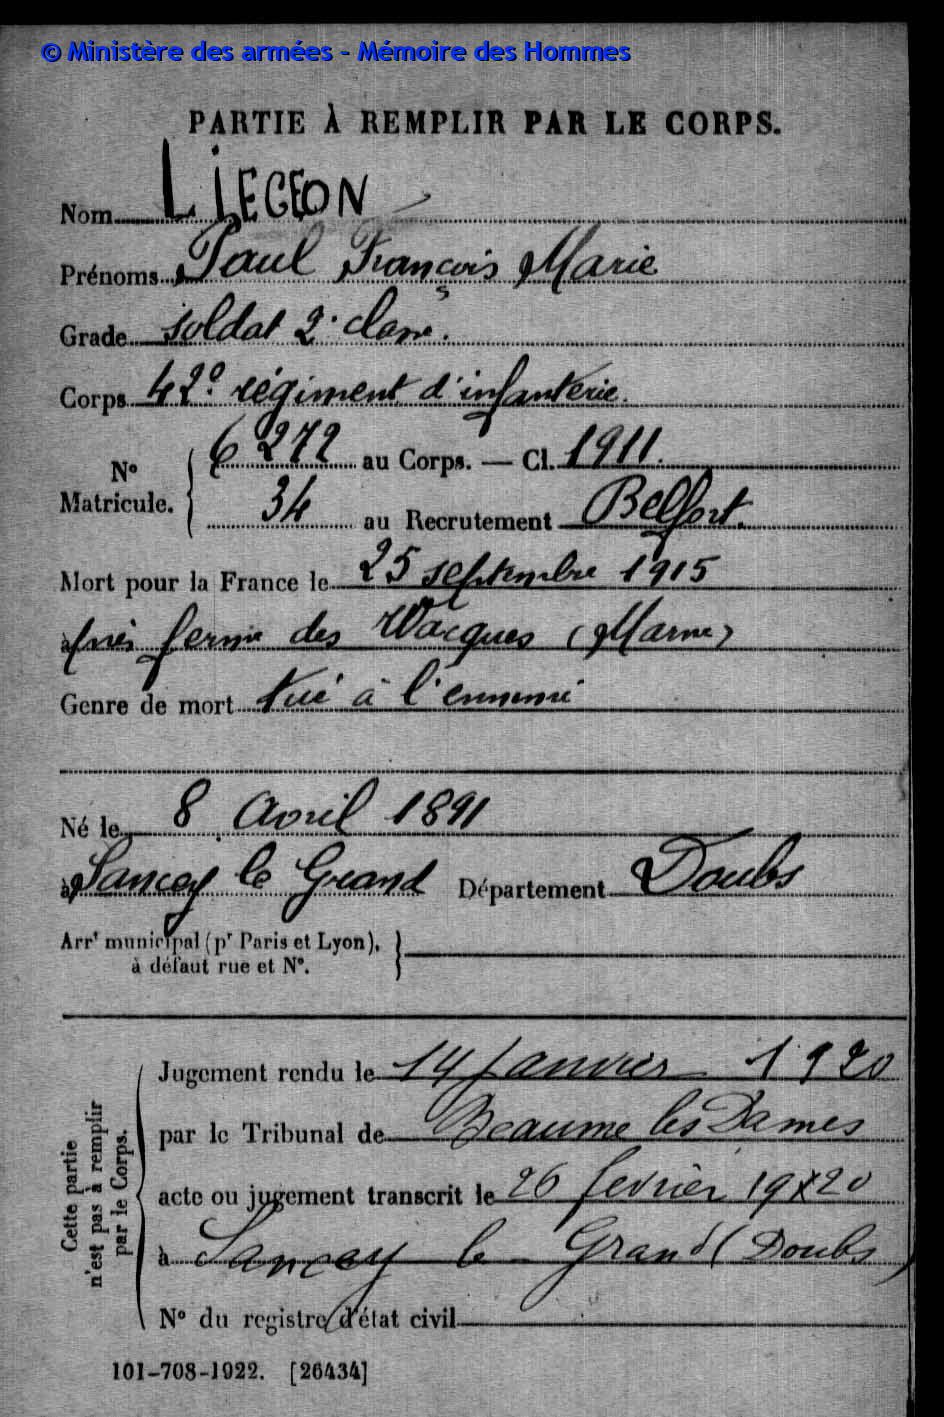 © Ministère des armées - Mémoire des Hommes
PARTIE À REMPLIR PAR LE CORPS.
Nom LIEGEON
Prénoms Paul François Marie
Grade soldat 2e classe.
Corps 42e régiment d'infanterie.
6272 au Corps. — Cl. 1911.
N° Matricule.
34 au Recrutement Belfort.
Mort pour la France le 25 septembre 1915
à près ferme des Wacques (Marne)
Genre de mort tué à l'ennemi
Né le 8 Avril 1891
à Sancey le Grand Département Doubs
Arrt municipal (pr Paris et Lyon),
à défaut rue et N°.
Cette partie
n'est pas à remplir
par le Corps.
Jugement rendu le 14 Janvier 1920
par le Tribunal de Beaume les Dames
acte ou jugement transcrit le 26 fevrièr 1920
à Sancey le Grand (Doubs)
N° du registre d'état civil
101-708-1922. [26434]